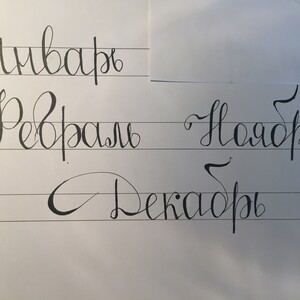 Январь
Февраль Ноябрь
Декабрь